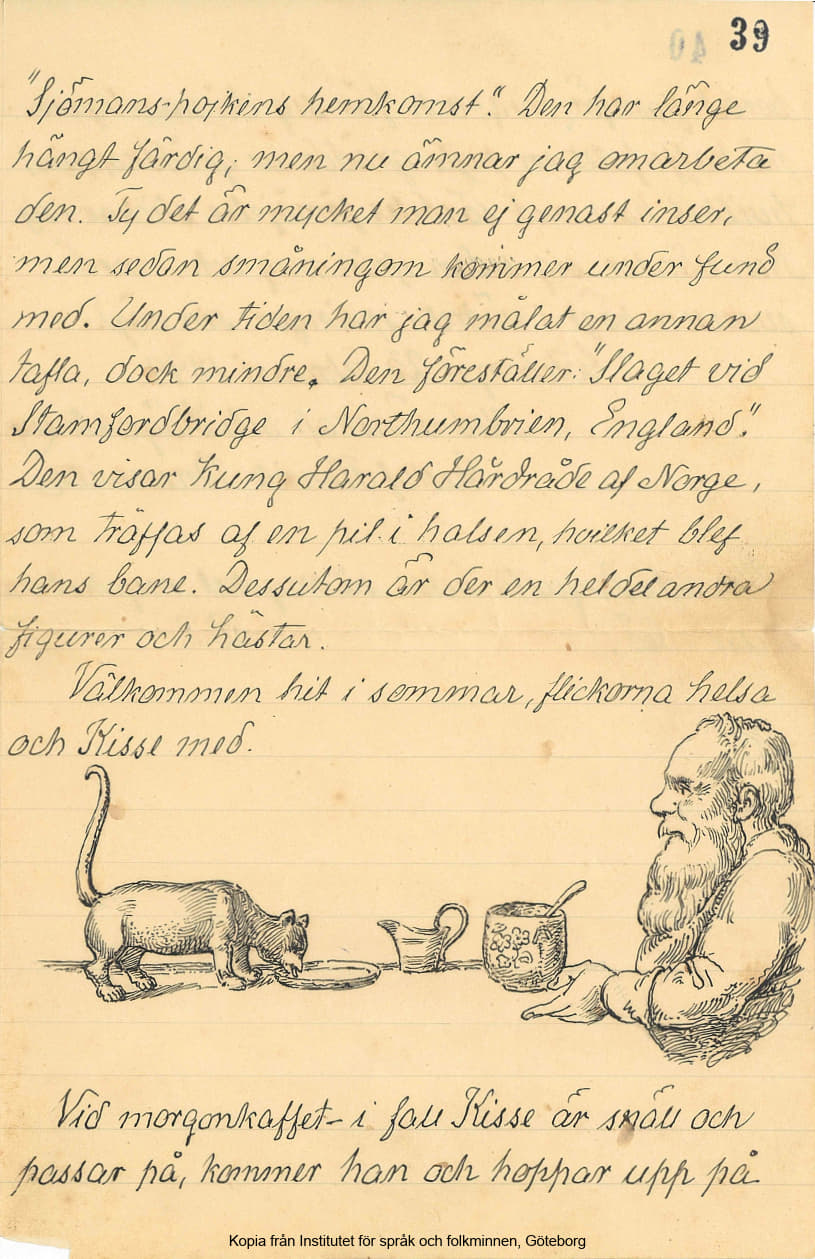 39
40
"Sjömans-pojkens hemkomst". Den har länge
hängt färdig, men nu ämnar jag omarbeta
den. Ty det är mycket man ej genast inser,
men sedan småningom kommer under fund
med. Under tiden har jag målat en annan
tafla, dock mindre. Den föreställer: "Slaget vid
Stamfordbridge i Northumbrien, England".
Den visar Kung Harald Hårdråde af Norge,
som träffas af en pil i halsen, hvilket blef
hans bane. Dessutom är der en heldel andra
figurer och hästar.
Välkommen hit i sommar, flickorna helsa
och Kisse med.
Vid morgonkaffet- i fall Kisse är snäll och
passar på, kommer han och hoppar upp på
Kopia från Institutet för språk och folkminnen, Göteborg